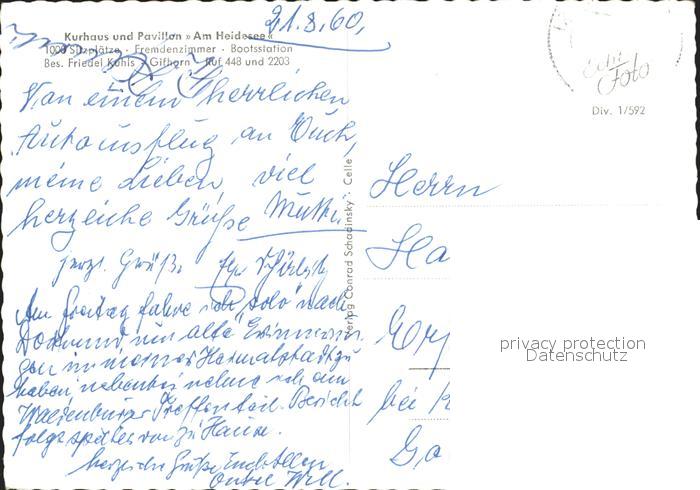 21.8.60,
Kurhaus und Pavillon » Am Heidesee «
1000 Sitzplätze · Fremdenzimmer · Bootsstation
Bes. Friedel Kuhls · Gifhorn · Ruf 448 und 2203
echt Foto
Div. 1/592
Von einem herrlichen
Autoausflug an Euch,
meine Lieben, viel
herzliche Grüße Mutti
herzl. Grüße
Am Freitag fahre ich „solo" nach
Dortmund, um alte
in meiner Heimatstadt zu
haben nebenbei nehme ich am
Waldenburger Treffen teil. Bericht
folgt später von zu Hause.
herzliche Grüße Euch allen
Onkel Will.
Verlag Conrad Schadinsky · Celle
Herrn
Ha
bei
privacy protection
Datenschutz